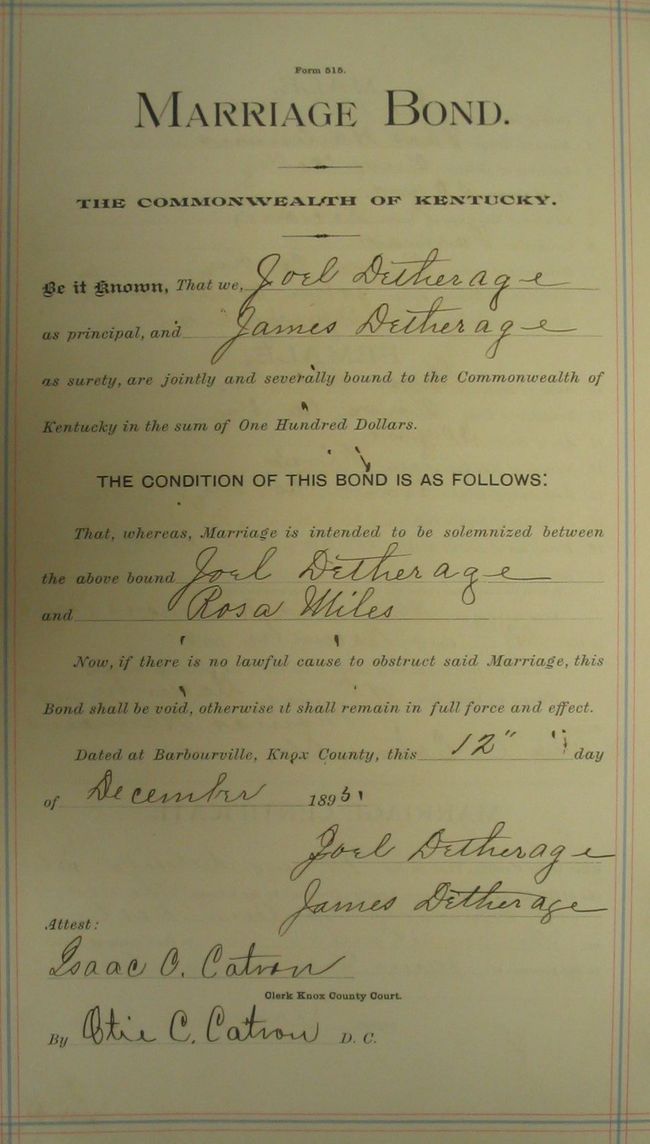 Form 515.
MARRIAGE BOND.
THE COMMONWEALTH OF KENTUCKY.
Be it Known, That we, Joel Detherage
as principal, and James Detherage
as surety, are jointly and severally bound to the Commonwealth of
Kentucky in the sum of One Hundred Dollars.
THE CONDITION OF THIS BOND IS AS FOLLOWS:
That, whereas, Marriage is intended to be solemnized between
the above bound Joel Detherage
and Rosa Miles
Now, if there is no lawful cause to obstruct said Marriage, this
Bond shall be void, otherwise it shall remain in full force and effect.
Dated at Barbourville, Knox County, this 12" day
of December 1895
Joel Detherage
James Detherage
Attest:
Isaac O. Catron
Clerk Knox County Court.
By Otie C. Catron D. C.